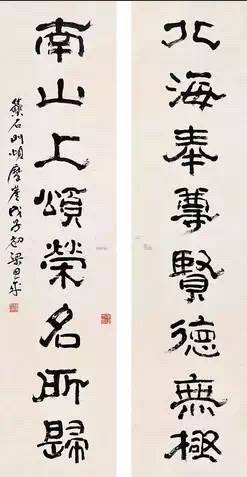 北海奉尊賢德無極
南山上頌榮名所歸
石門頌摩崖戊子初梁